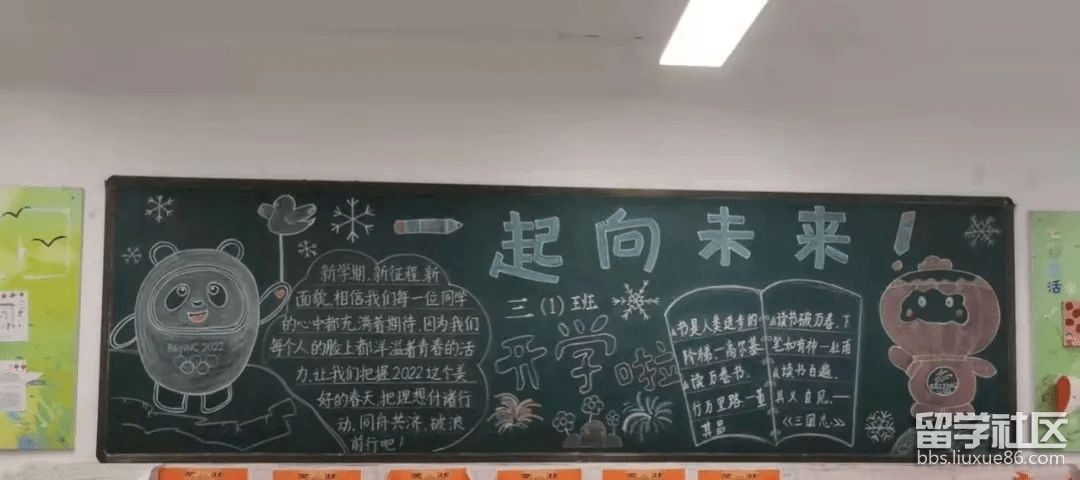 一起向未来！
三（1）班
开学啦
新学期，新征程，新
面貌。相信我们每一位同学
的心中都充满着期待，因为我们
每个人的脸上都洋溢着青春的活
力，让我们把握2022这个美
好的春天，把理想付诸行
动，同舟共济，破浪
前行吧！
BEIJING 2022
书是人类进步的
阶梯。—高尔基
读万卷书，
行万里路。—董
其昌
读书破万卷，下
笔如有神—杜甫
读书百遍，
其义自见。—
《三国志》
活
留学社区
bbs.liuxue86.com